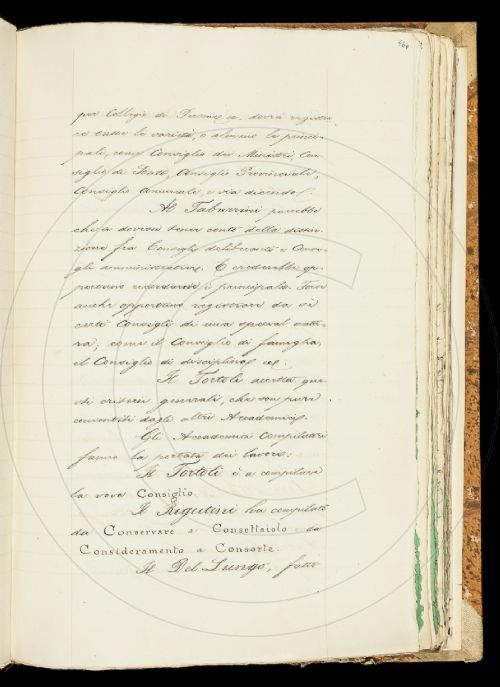 464
per Collegio di Persone ec. dovrà registra-
re tutte le varietà, o almeno le princi-
pali, come Consiglio dei Ministri, Con-
siglio di Stato, Consiglio Provinciale,
Consiglio Comunale, e via dicendo.
Al Tabarrini parrebbe
che si dovesse tener conto della distin-
zione fra Consigli deliberanti e Consi-
gli amministrativi. E crederebbe op-
portuno i principali. Forse
anche opportuno registrare da sè
certi Consigli di una special natu-
ra, come il Consiglio di famiglia,
il Consiglio di disciplina ec.
Il Tortoli accetta que-
sti criterii generali, che son pure
consentiti dagli altri Accademici.
Gli Accademici Compilatori
fanno la portata dei lavori:
Il Tortoli è a compilare
la voce Consiglio.
Il Rigutini ha compilato
da Conservare a Consettaiolo e da
Consideramento a Consorte.
Il Del Lungo, fatto